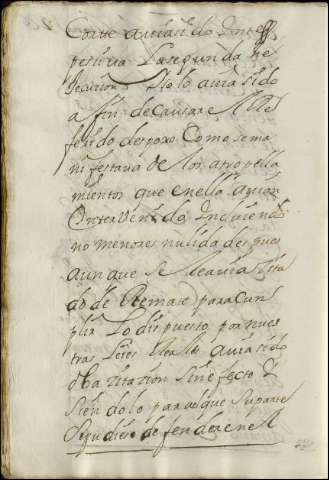 Corte auia sido Inte
pestiua La segunda ne
gacion Solo auia sido
a fin de Causar el Re
ferido despoxo Como se ma
nifestaua de los atropella
mientos que en ella auian
Interuenido Incluiendo
no menores nulidades pues
aunque se le auia sita
do de Remate para Cun
plir Lo dispuesto por nues
tras Leies Reales auia sido
la zitazion sin efecto
siendolo para que su parte
se pudiese defender en el